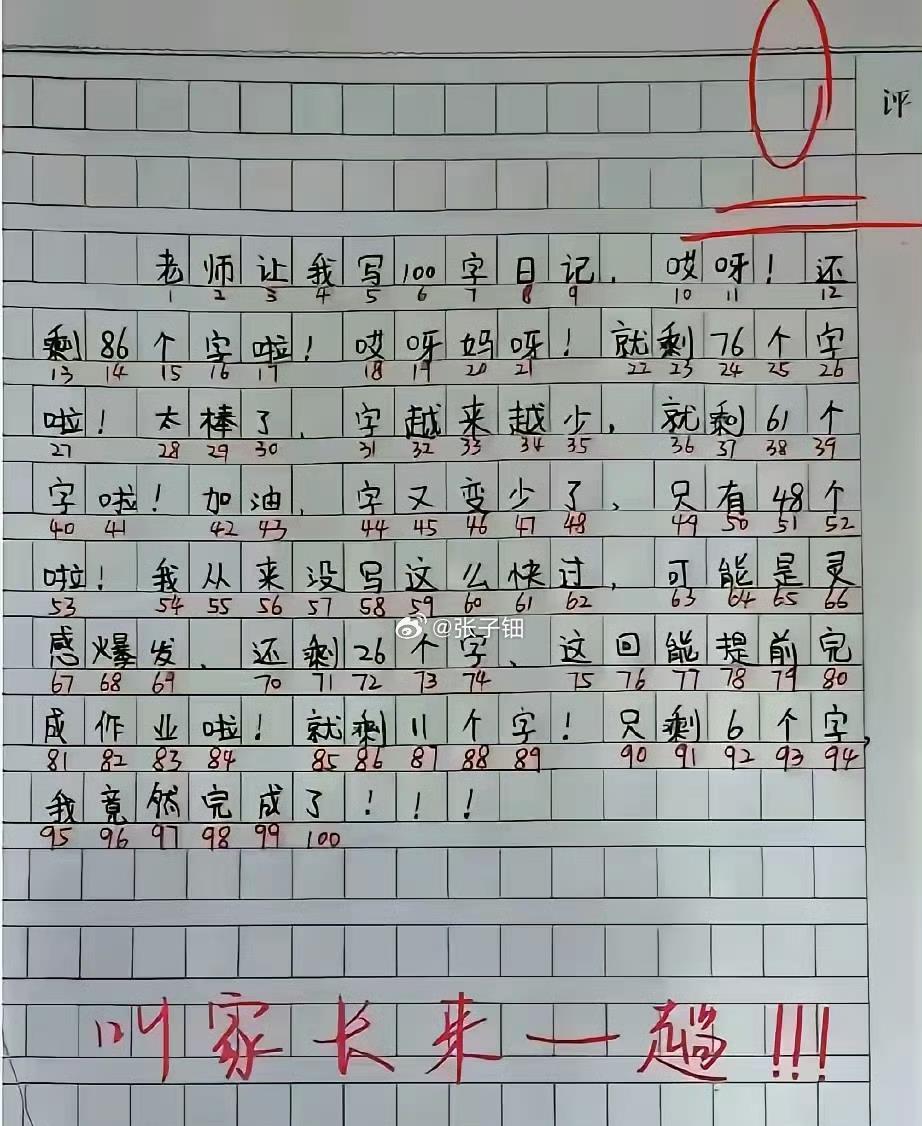 评
老师让我写100字日记，哎呀！还
1 2 3 4 5 6 7 8 9 10 11 12
剩86个字啦！哎呀妈呀！就剩76个字
13 14 15 16 17 18 19 20 21 22 23 24 25 26
啦！太棒了、字越来越少，就剩61个
27 28 29 30 31 32 33 34 35 36 37 38 39
字啦！加油、字又变少了、只有48个
40 41 42 43 44 45 46 47 48 49 50 51 52
啦！我从来没写这么快过，可能是灵
53 54 55 56 57 58 59 60 61 62 63 64 65 66
@张子钿
感爆发、还剩26个字、这回能提前完
67 68 69 70 71 72 73 74 75 76 77 78 79 80
成作业啦！就剩11个字！只剩6个字，
81 82 83 84 85 86 87 88 89 90 91 92 93 94
我竟然完成了！！！
95 96 97 98 99 100
叫家长来一趟!!!